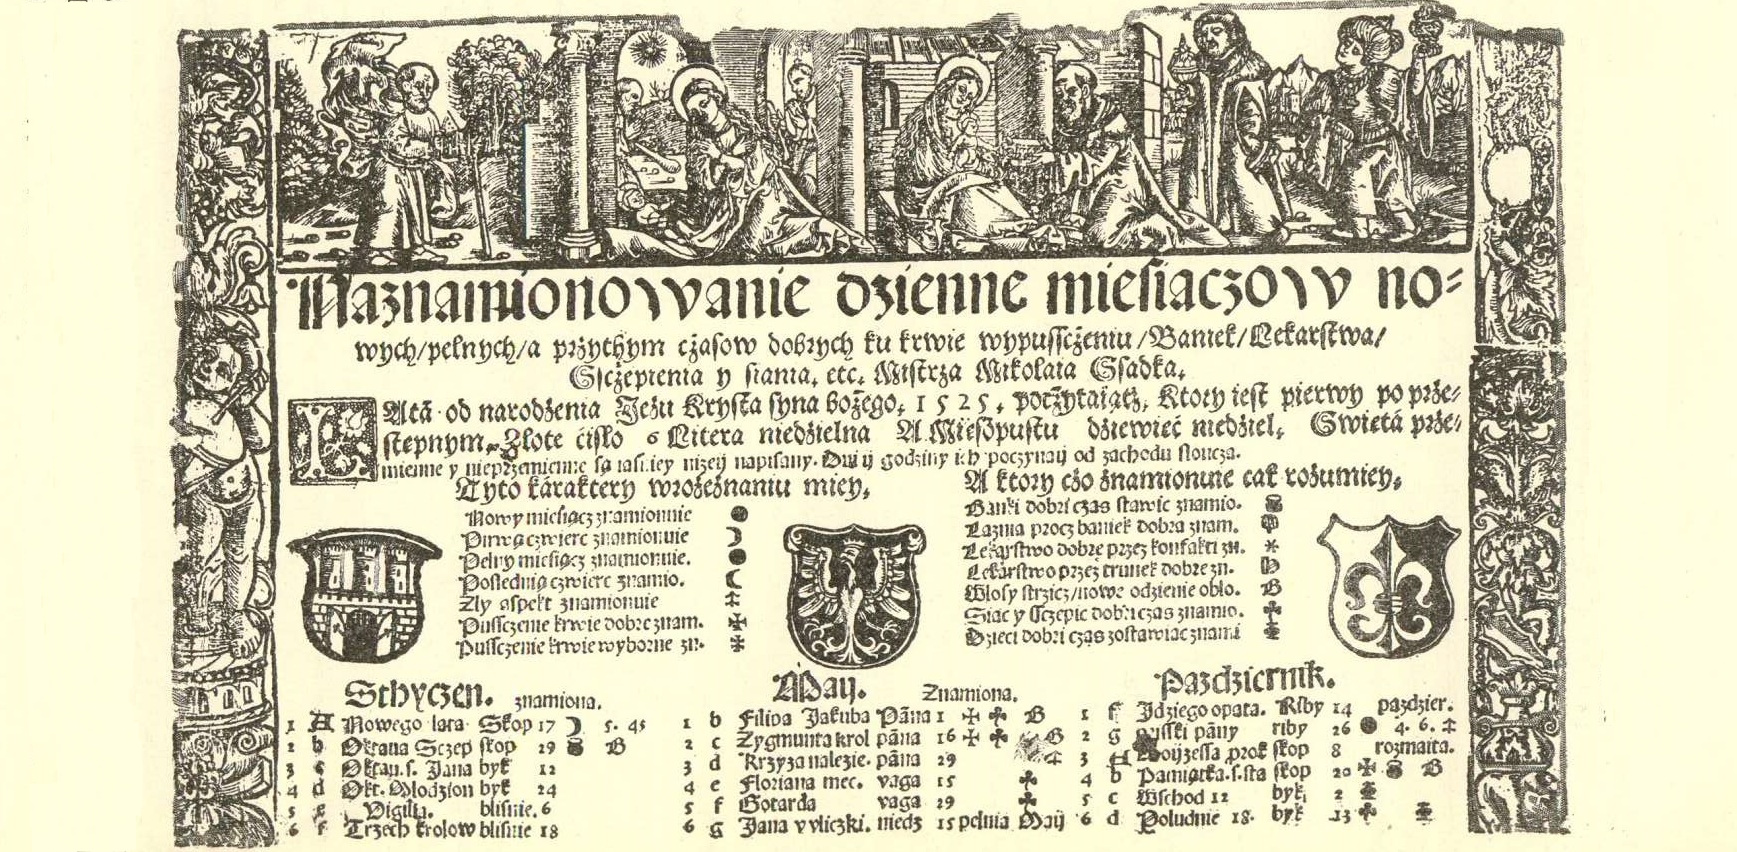 Naznamionowanie dzienne miesiaczow no⸗
wych/pelnych/a przythym czasow dobrych ku krwie wypussczeniu/Baniek/Lekarstwa/
Ssczepienia y siania, etc. Mistrza Mikolaia Ssadka.
LAtā od narodzenia Jezu Krysta syna bożego, 1525, poczytaiątz, Ktory iest pierwy po prze⸗
stepnym. Złote cisło 6 Litera niedzielna A Miesopustu dziewieć niedziel, Swięta prze⸗
mienne y nieprzemienne są iasniey niżey napisany. Dni y godziny ich poczynay od zachodu słoncza.
Tyto karaktery wrozeznaniu miey,
Nowy miesiącz znamionuie
Pirwą czwierc znamionuie
Pelny miesiącz znamionuie.
Poslednią czwierc znamio.
Zly aspekt znamionuie
Pussczenie krwie dobre znam.
Pussczenie krwie wyborne zn.
A ktory czo znamionuie tak rozumiey,
Banki dobri czas stawic znamio.
Laznia procz baniek dobra znam.
Lekarstwo dobre przez konfakti zn.
Lekarstwo przez trunek dobre zn.
Wlosy strzicz/nowe odzienie oblo.
Siac y sczepic dobri czas znamio.
Dzieci dobri czas zostawiac znami
Sthyczen. znamiona.
1 A Nowego lata Skop 17 ☽ 5. 45
2 b Oktaua Sczep skop 29 B
3 c Oktau. s. Jana byk 12
4 d Okt. Mlodzion byk 24
5 e Vigilia. bliznie. 6
6 f Trzech krolow bliznie 18
May. Znamiona.
1 b Filipa Jakuba Pāna 1 ✠ ♣ B
2 c Zygmunta krol pāna 16 ✠ ♣ B
3 d Krzyza nalezie. pāna 29
4 e Floriana mec. vaga 15 ♣
5 f Gotarda vaga 29 ♣
6 g Jana v vliczki. niedz 15 pelnia Maij
Pazdziernik.
1 f Jdziego opata. Riby 14 pazdzier.
2 g pāny riby 26 ● 4. 6.
3 A prok skop 8 rozmaita.
4 b Pamiątka. s. sta skop 20 ✠ B
5 c Wschod 12 byk 2
6 d Poludnie 18. byk 13 ♣